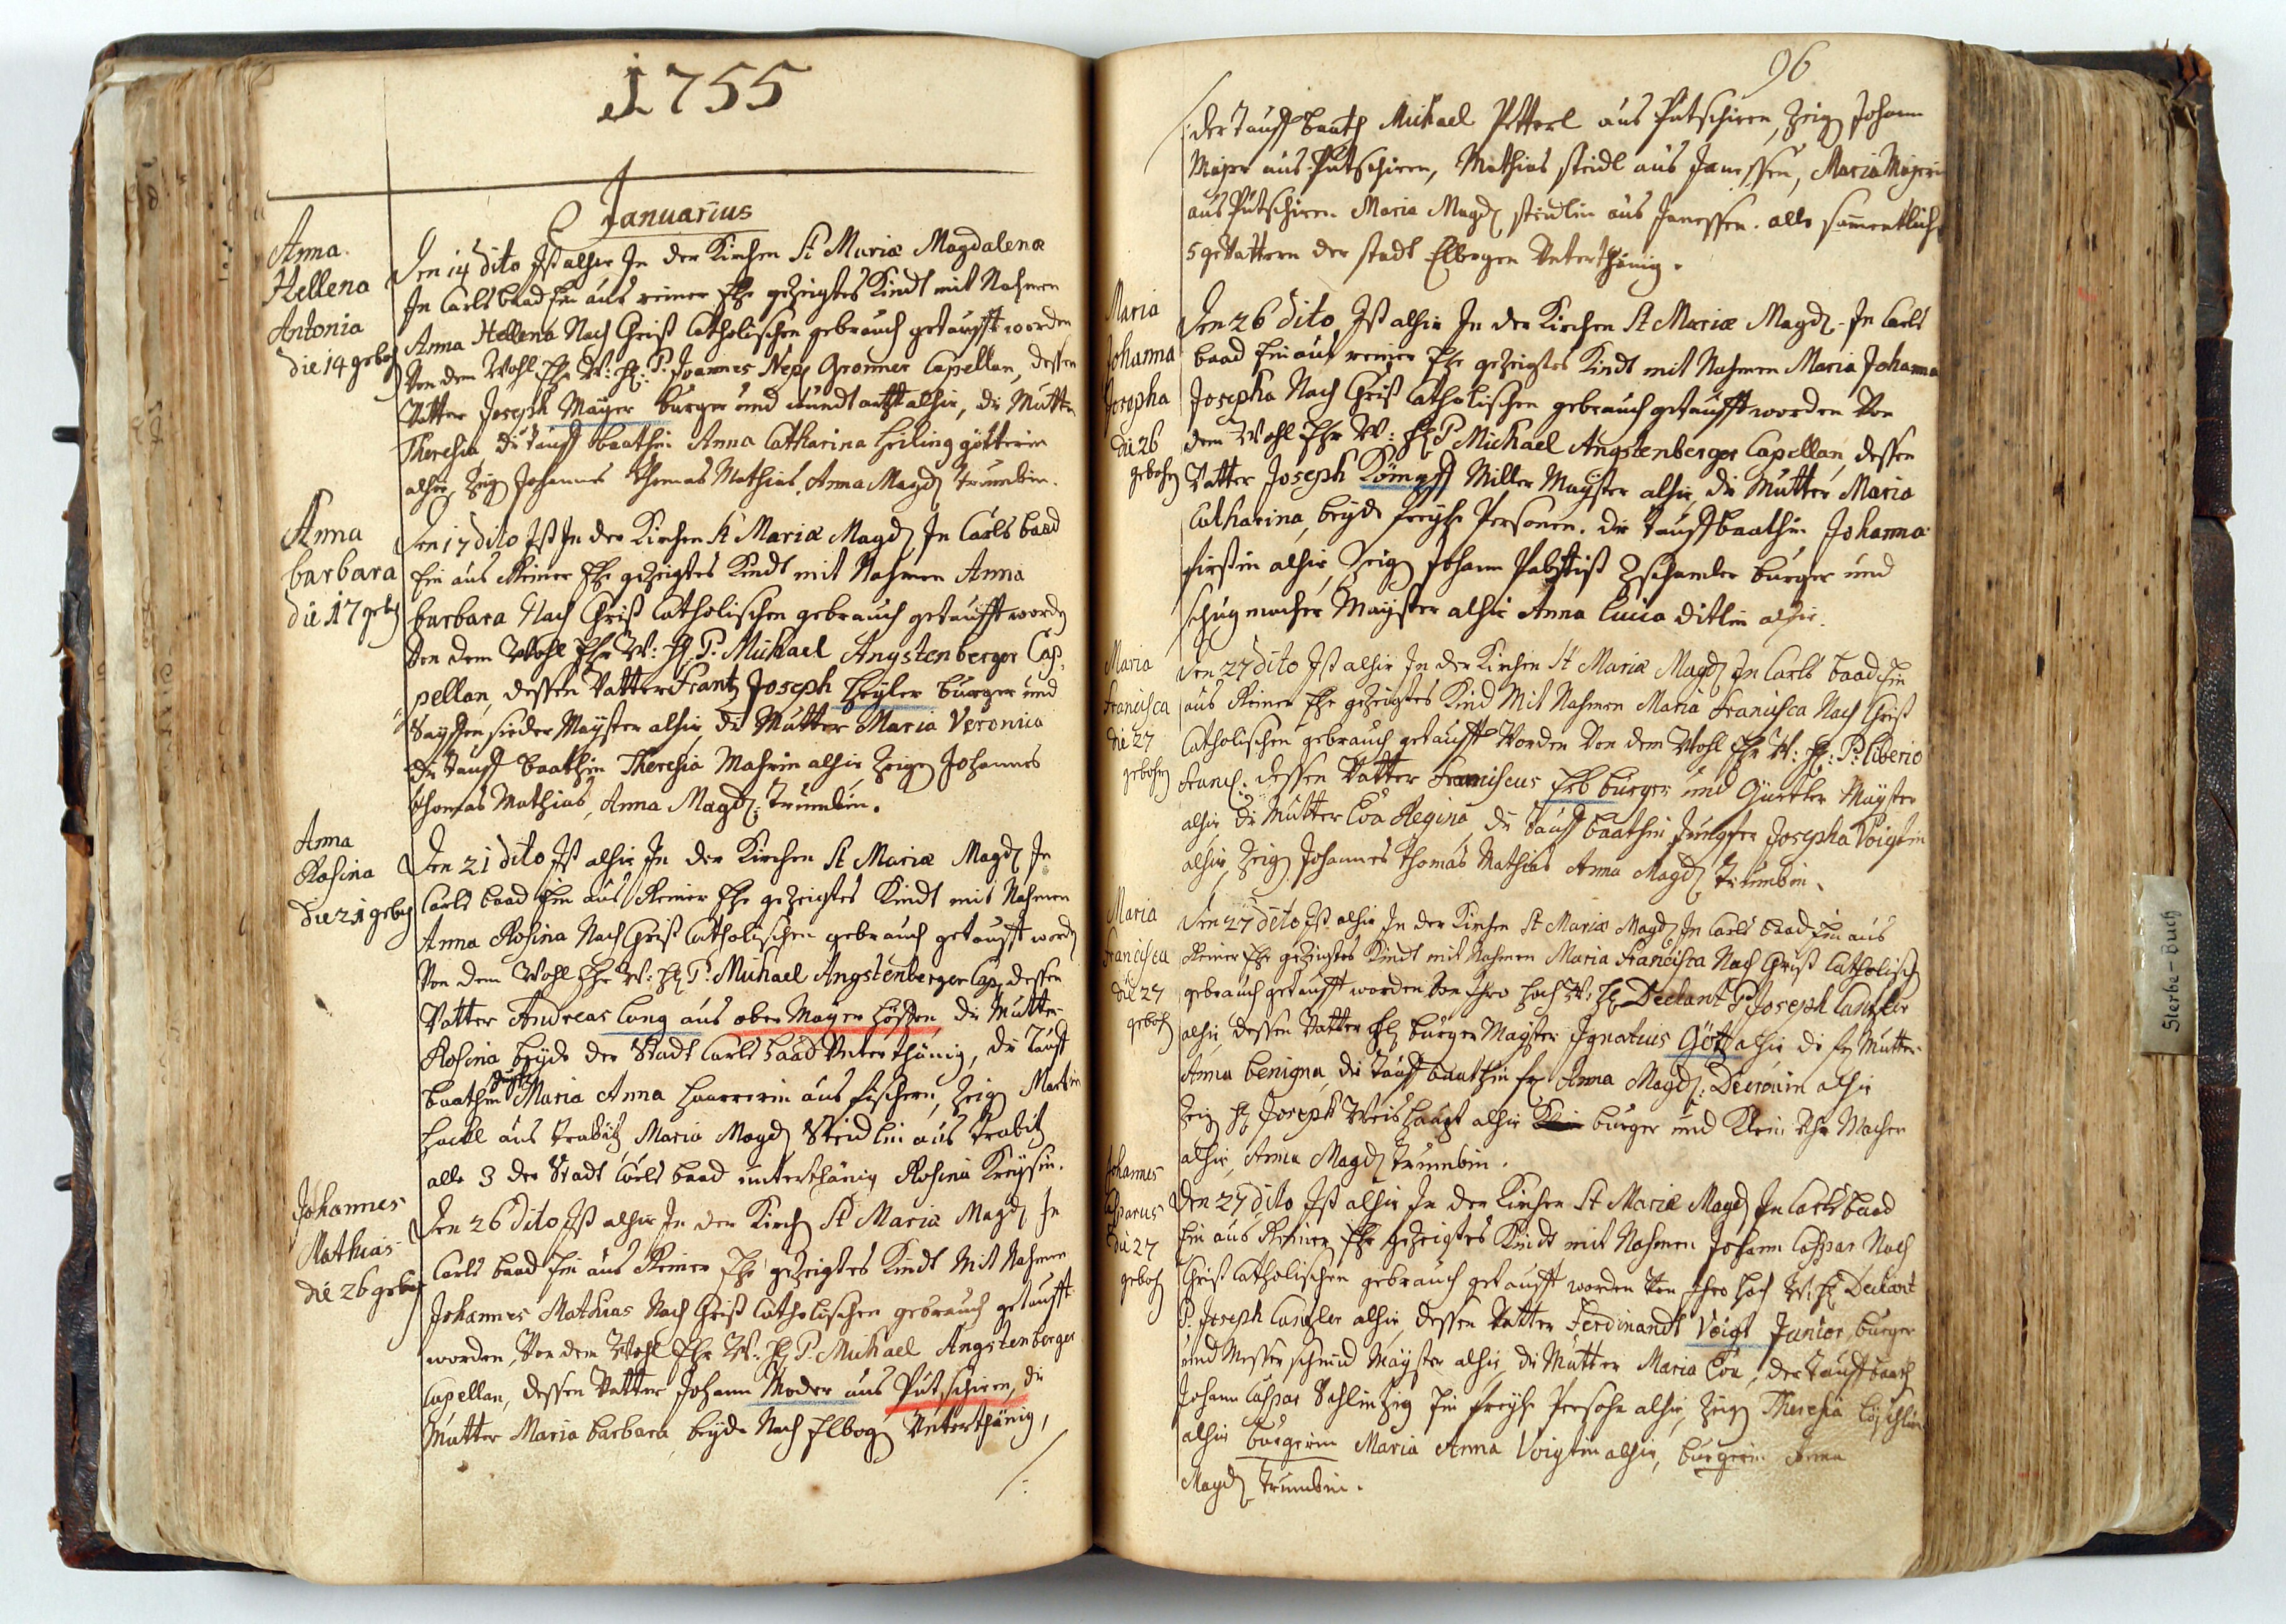 1755
Januarius
Anna
Hellena
Antonia
die 14 geboh
Den 14 dito Ist alhir In der Kirchen St Mariæ Magdalenæ
In Carlsbaad Ein aus reiner Ehe gezeigtes Kindt mit Nahmen
Anna Hellena Nach Christ Catholischen gebrauch getaufft worden
Von dem Wohl Ehr W: H: P. Joannes Nep Gronner Capellan, dessen
Vatter Joseph Mayer burger und wundtartzt alhir, die Mutter
Theresia die tauff baathin Anna Catharina Heiling götterin
alhir, Zeig Johannes Thomas Mathias, Anna Magd Trumbin.
Anna
barbara
die 17 geboh
Den 17 dito Ist In der Kirchen St Mariæ Magd In Carlsbaad
Ein aus Reiner Ehe gezeigtes Kindt mit Nahmen Anna
barbara Nach Christ Catholischen gebrauch getaufft word
Von dem Wohl Ehr W: H P. Michael Angstenberger Cap,
pellan, dessen Vatter Frantz Joseph Heyler burger und
Sayffensieder Mayster alhir, die Mutter Maria Veronica
die tauff baathin Theresia Mahrin alhir Zeigen Johannes
Thomas Mathias, Anna Magd: Trumbin.
Anna
Rosina
die 21 geboh
Den 21 dito Ist alhir In der Kirchen St Mariæ Magd In
Carlsbaad Ein aus Reiner Ehe gezeigtes Kindt mit Nahmen
Anna Rosina Nach Christ Catholischen gebrauch getaufft word
Von dem Wohl Ehr W: H P. Michael Angstenberger Cap, dessen
Vatter Andreas Lang aus ober Mayer Höffen, die Mutter
Rosina beyde der Stadt Carlsbaad Unterthänig, die Tauff
baathin Maria Anna Haarerin aus fischern, Zeig Martin
Hackl aus trabitz Maria Magd Steidlin aus trabitz
alle 3 der Stadt Carlsbaad unterthänig Rosina Kreysin.
Johannes
Mathias
die 26 geboh
Den 26 dito Ist alhir In der Kirch St Mariæ Magd In
Carlsbaad Ein aus Reiner Ehe gezeigtes Kindt Mit Nahmen
Johannes Mathias Nach Christ Catholischen gebrauch getaufft
worden, Von dem Wohl Ehr W: H P. Michael Angstenberger
Capellan, dessen Vatter Johann Moder aus Putschirn, die
Mutter Maria barbara, beyde Nach Elbog Unterthänig,
96
der tauff baath Michael Petterl aus Putschiren, Zeig Johann
Mayer aus Putschiren, Mathias Steidl aus Janessen, Maria Mayerin
aus Putschiren Maria Magd Steidlin aus Janessen. alle samentlich
5 gevattern der Stadt Elbogen Unterthänig.
Maria
Johanna
Josepha
die 26
gebohr
Den 26 dito Ist alhir In der Kirchen St Mariæ Magd In Carls
baad Ein aus reiner Ehe gezeigtes Kindt mit Nahmen Maria Johanna
Josepha Nach Christ Catholischen gebrauch getaufft worden Von
dem Wohl Ehr W: H P Michael Angstenberger Capellan, dessen
Vatter Joseph Miller Mayster alhir die Mutter Maria
Catharina, beyde freyhe Personen. die tauffbaathin Johanna
fürstin alhir, Zeig Johann Pabtist Zschamler burger und
schuhmacher Mayster alhir Anna Lucia ditlin alhir.
Maria
Francisca
die 27
gebohr
Den 27 dito Ist alhir In der Kirchen St Mariæ Magd In Carlsbaad Ein
aus Reiner Ehe gezeigtes Kind Mit Nahmen Maria Francisca Nach Christ
Catholischen gebrauch getaufft Worden Von dem Wohl Ehr W: H: P: Liberio
Franc: dessen Vatter Franciscus Erb burger und Gürtler Mayster
alhir die Mutter Eva Regina, die tauff baathin Jungfer Josepha Voigtin
alhir, Zeig Johannes Thomas Mathias Anna Magd Trumbin.
Maria
Francisca
die 27
geboh
Den 27 dito Ist alhir In der Kirchen St Mariæ Magd In Carlsbaad Ein aus
Reiner Ehe gezeigtes Kindt mit Nahmen Maria Francisca Nach Christ Catholisch
gebrauch getaufft worden Von Ihro Hoch W: H Dechant P Joseph Cantzler
alhir, dessen Vatter H burger Mayster Ignatius Götz alhir die fr Mutter
Anna benigna, die tauff baathin fr Anna Magd: Deeronin alhir
Zeig H Joseph Weishaupt alhir burger und Klein Uhr Macher
alhir, Anna Magd Trumbin.
Johannes
Casparus
die 27
geboh
Den 27 dito Ist alhir In der Kirchen St Mariæ Magd In Carlsbaad
Ein aus Reiner Ehe gezeigtes Kindt mit Nahmen Johann Caspar Nach
Christ Catholischen gebrauch getaufft worden Von Ihro Hoch W: H Dechant
P. Joseph Cantzler alhir, dessen Vatter Ferdinandt Voigt Junior, burger
und Messerschmid Mayster alhir, die Mutter Maria Eva, der Tauffbaath
Johann Caspar Schlintzig Ein freyhe Persohn alhir, Zeig Theresia Löschlin
alhir burgerin Maria Anna Voigtin alhir, burgerin Anna
Magd Trumbin.
Sterbe-Buch